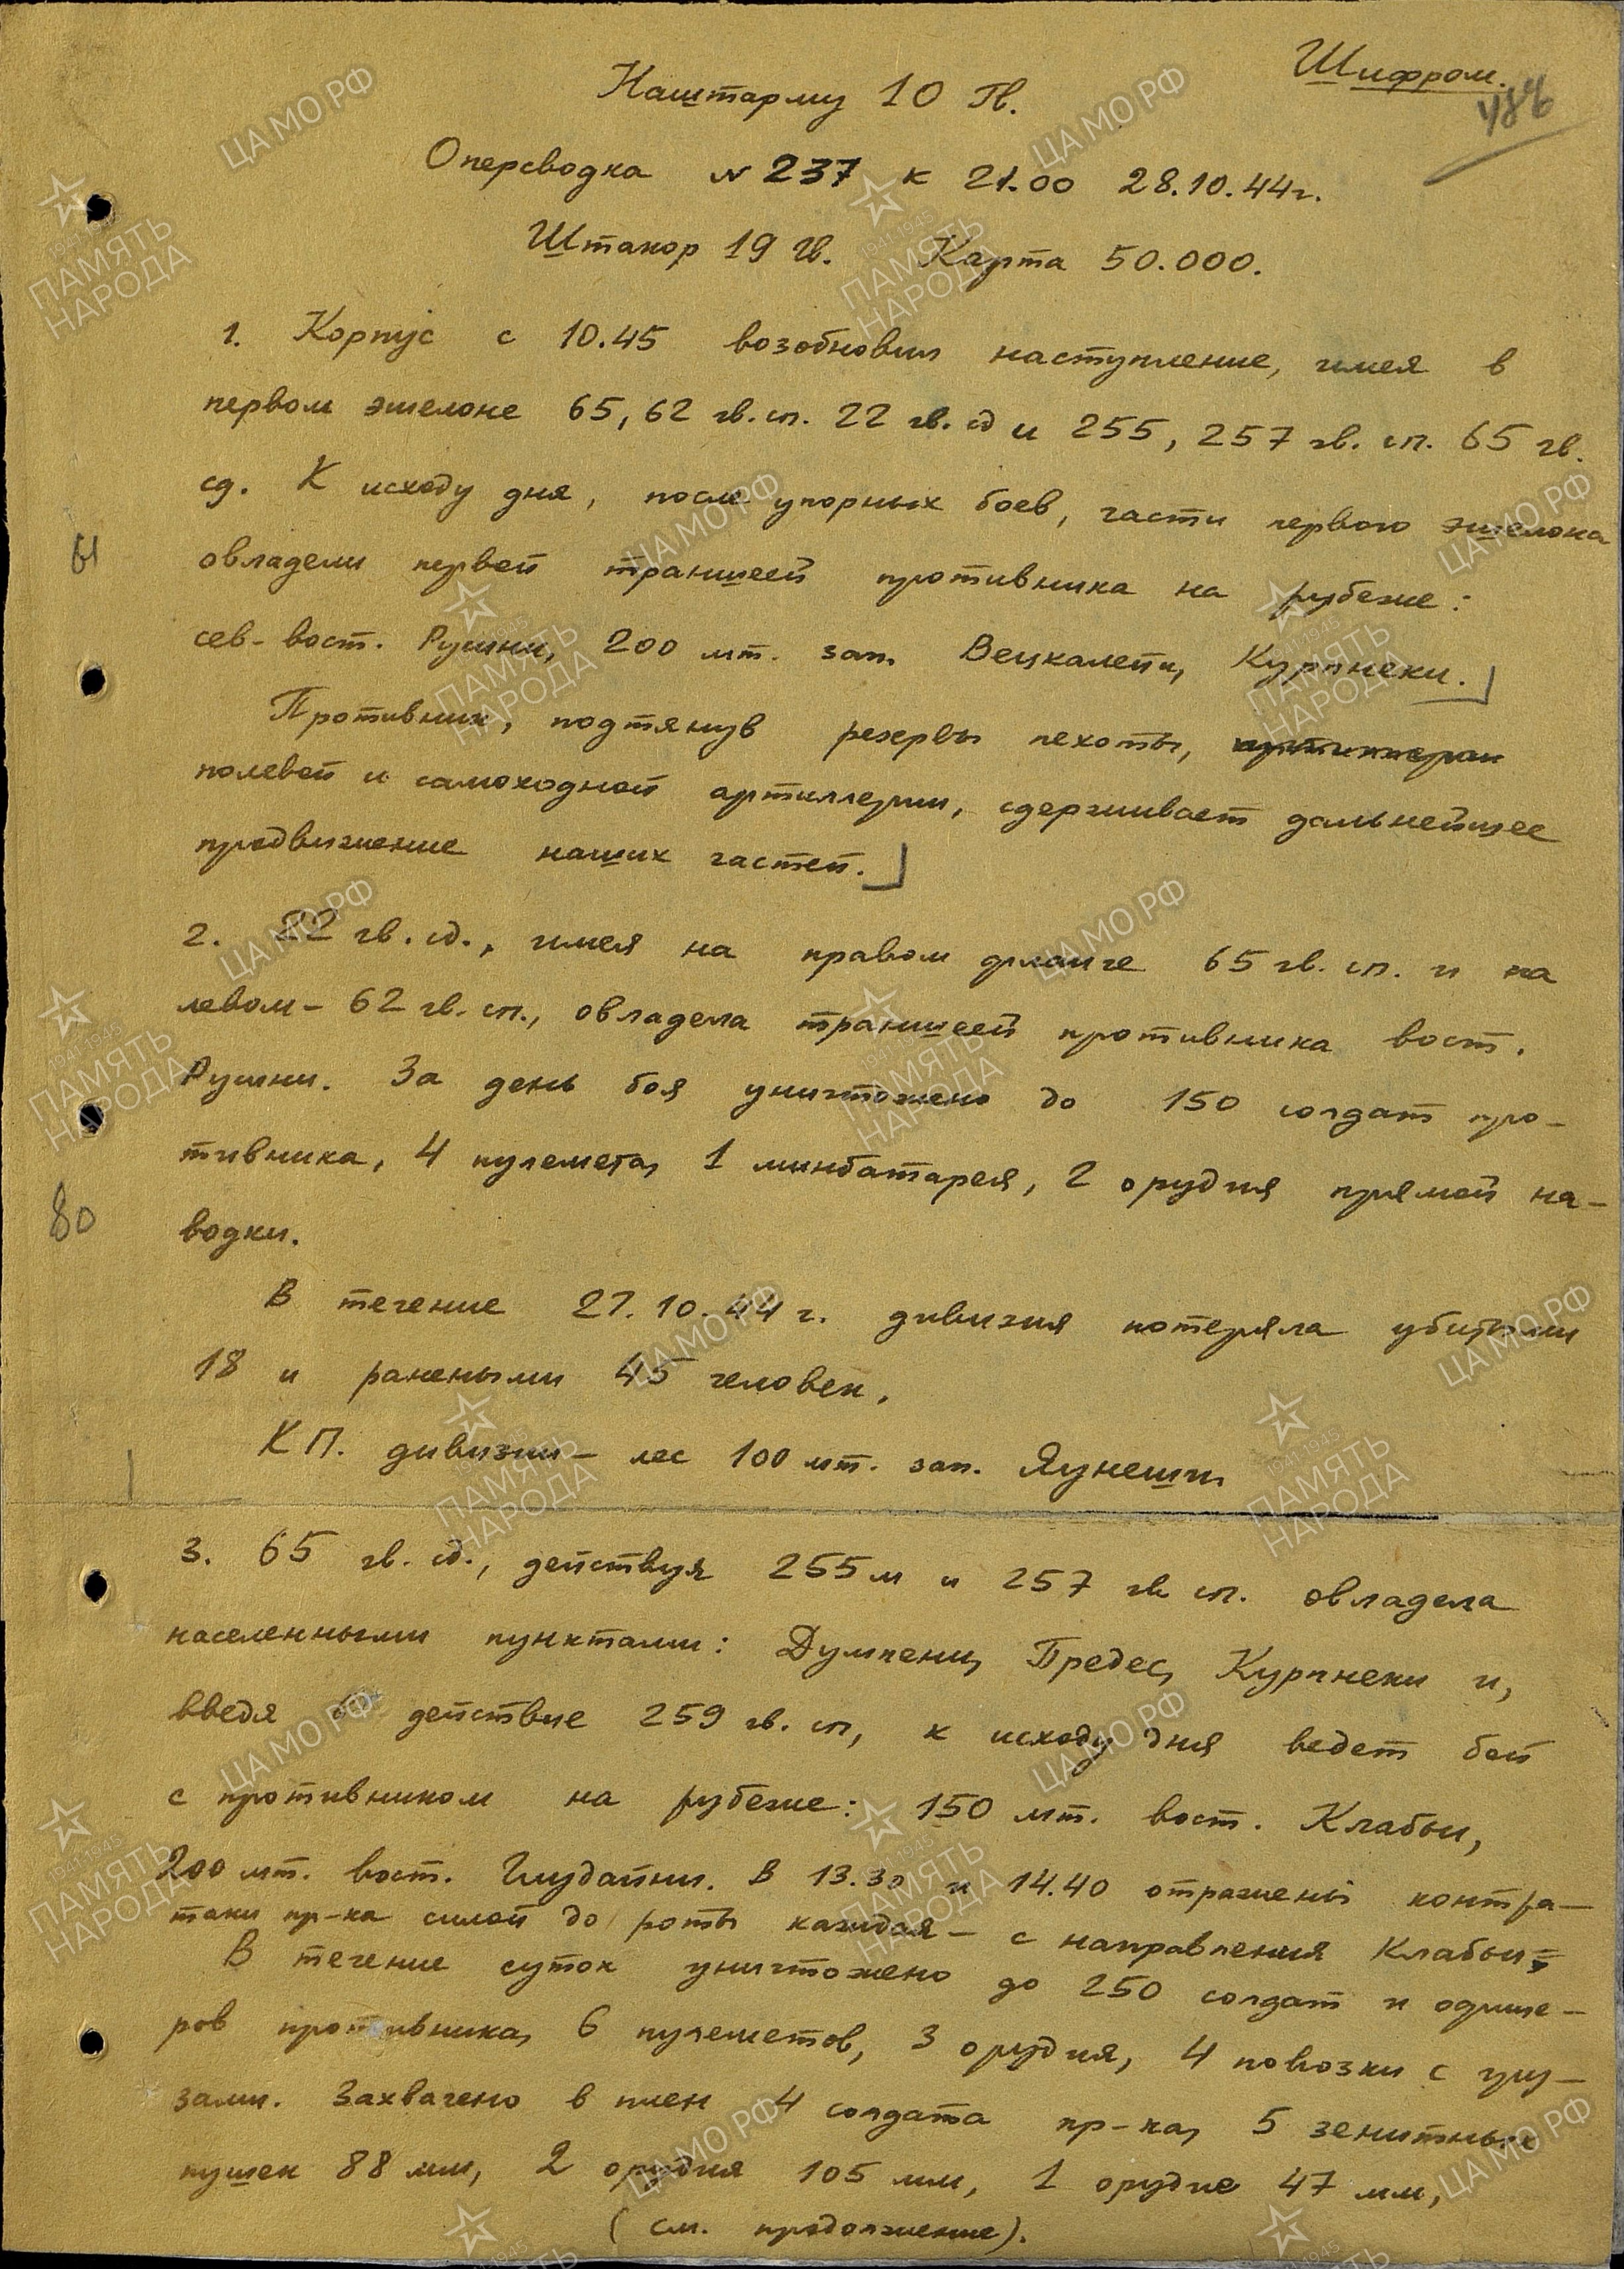 Шифром.
486
Наштарму 10 Гв.
Оперсводка № 237 к 21.00 28.10.44г.
Штакор 19 Гв. Карта 50.000.
1. Корпус с 10.45 возобновил наступление, имея в
первом эшелоне 65, 62 гв. сп. 22 гв. сд и 255, 257 гв. сп. 65 гв.
сд. К исходу дня, после упорных боев, части первого эшелона
овладели первой траншеей противника на рубеже:
сев-вост. Рушни, 200 мт. зап. Вецкалети, Курпнеки.
Противник, подтянув резервы пехоты,
полевой и самоходной артиллерии, сдерживает дальнейшее
продвижение наших частей.
2. 22 гв. сд., имея на правом фланге 65 гв. сп. и на
левом - 62 гв. сп., овладела траншеей противника вост.
Рушни. За день боя уничтожено до 150 солдат про-
тивника, 4 пулемета, 1 минбатарея, 2 орудия прямой на-
80
водки.
В течение 27.10.44 г. дивизия потеряла убитыми
18 и ранеными 45 человек.
КП. дивизии - лес 100 мт. зап. Яунеши.
3. 65 гв. сд., действуя 255м и 257 гв. сп. овладела
населенными пунктами: Думпени, Предес, Курпнеки и,
введя в действие 259 гв. сп, к исходу дня ведет бой
с противником на рубеже: 150 мт. вост. Клабьи,
200 мт. вост. Глудайни. В 13.30 и 14.40 отражены контра-
таки пр-ка силой до роты каждая - с направления Клабьи.
В течение суток уничтожено до 250 солдат и офице-
ров противника, 6 пулеметов, 3 орудия, 4 повозки с гру-
зами. Захвачено в плен 4 солдата пр-ка, 5 зенитных
пушек 88 мм, 2 орудия 105 мм, 1 орудие 47 мм,
(см. продолжение).
ЦАМО РФ
1941-1945
ПАМЯТЬ
НАРОДА